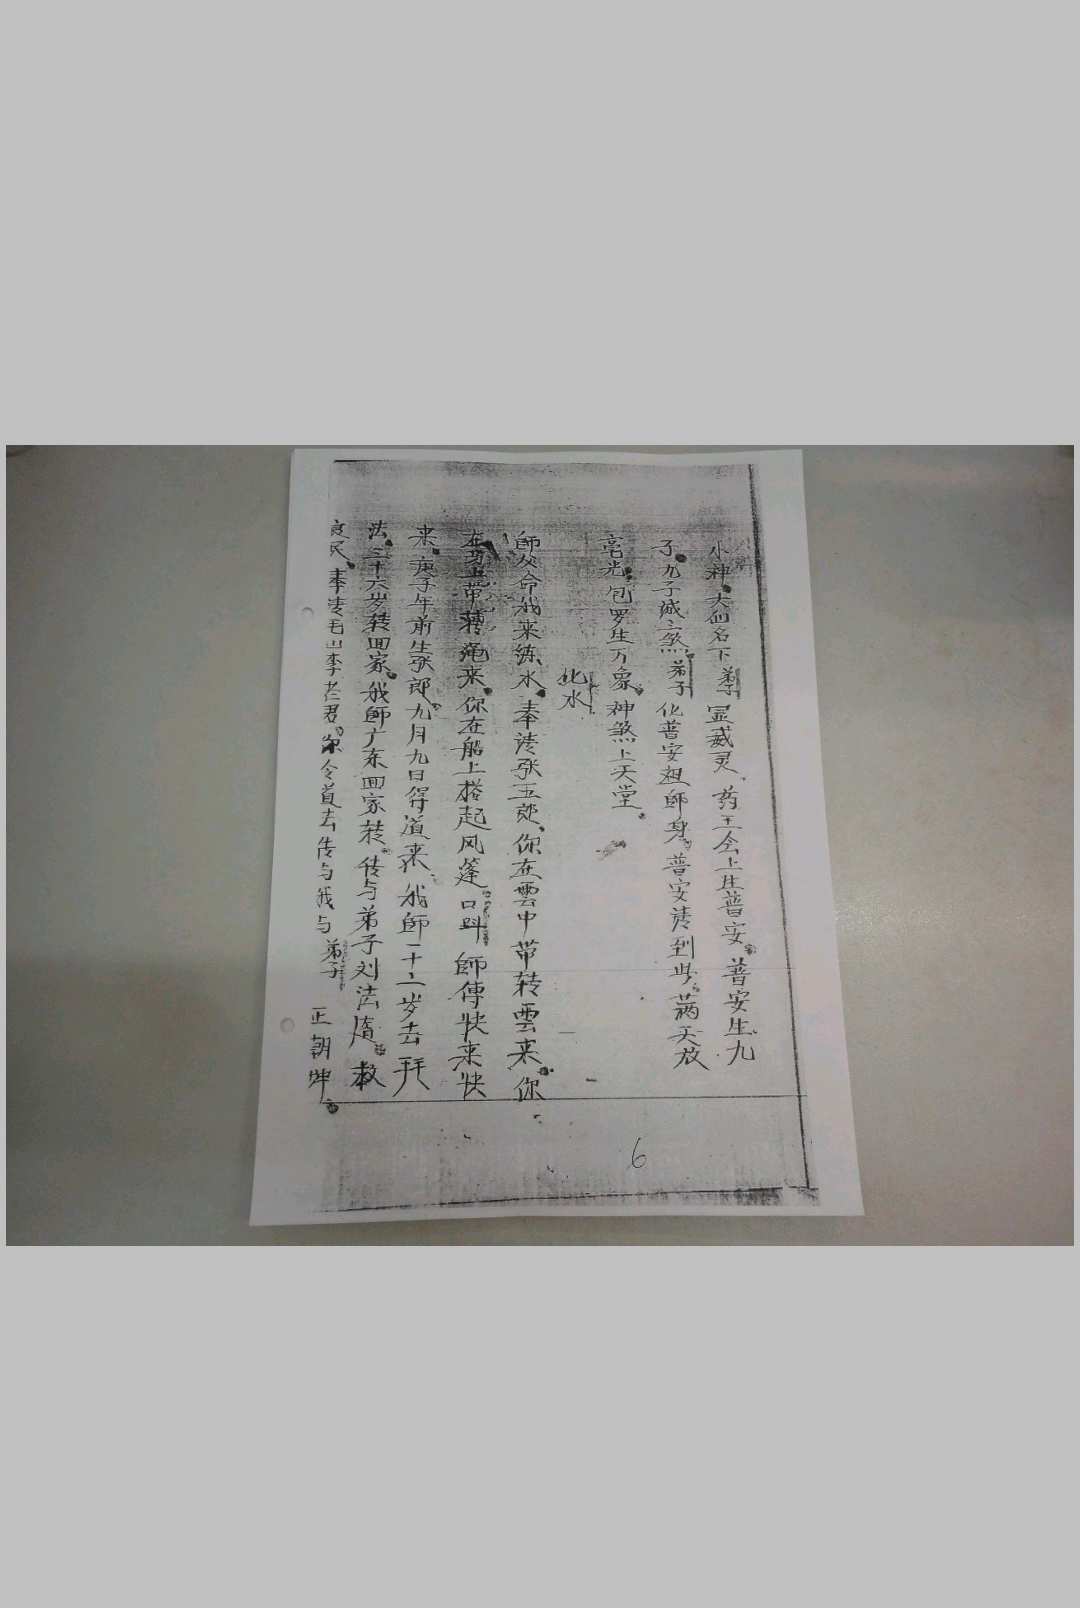 小神。大仙名下弟子显威灵。药王会上生普安。普安生九
子。九子减三煞。弟子化普安祖師身。普安请到此。蒲天放
毫光。包罗生万象。神煞上天堂。
化水
師父命我来练水。奉请张五郎、你在雲中带转雲来。你
在身上带转 绳来。你在船上撘起风篷。口叫師傅快来快
来。庚子年前生张郎。九月九日得道来。我師十二岁去拜
法。三十六岁转回家。我師广东回家转。传与弟子刘法 。救
良民。奉请毛山李老君。你令道去传与我与弟子 正朝坤。
6